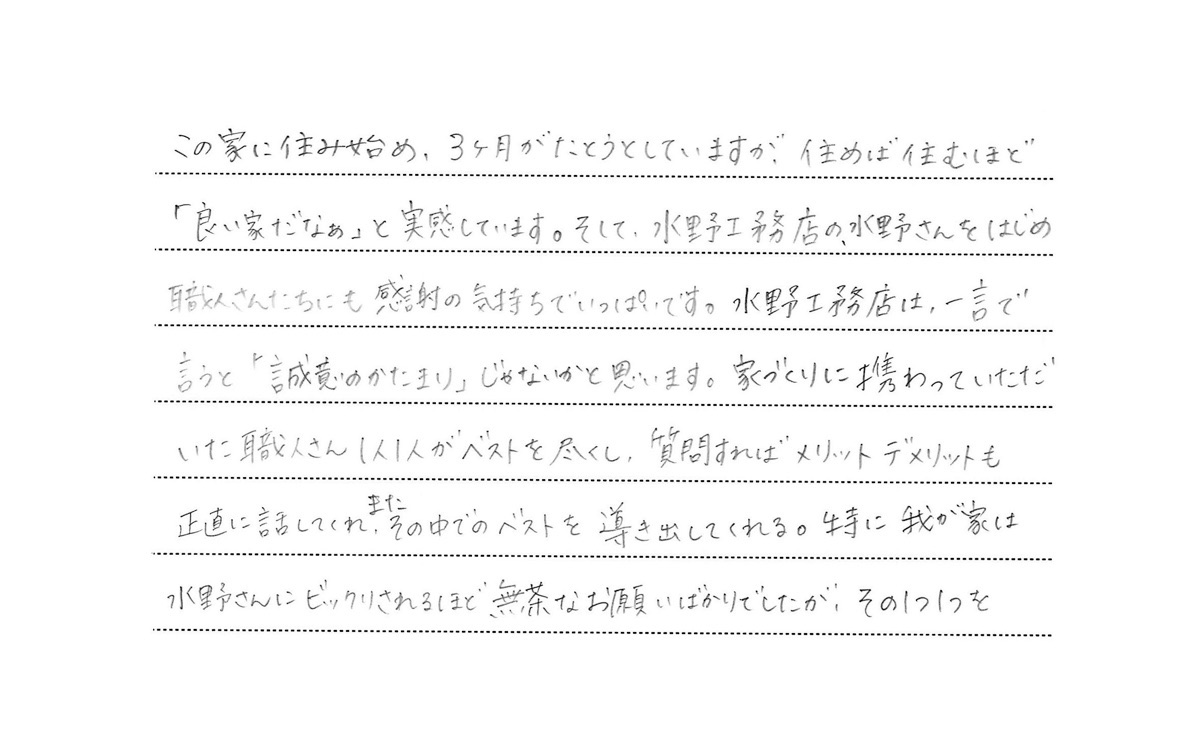 この家に住み始め、3ヶ月がたとうとしていますが、住めば住むほど
「良い家だなぁ」と実感しています。そして、水野工務店の、水野さんをはじめ
職人さんたちにも感謝の気持ちでいっぱいです。水野工務店は、一言で
言うと「誠意のかたまり」じゃないかと思います。家づくりに携わっていただ
いた職人さん1人1人がベストを尽くし、質問すればメリットデメリットも
正直に話してくれ、またその中でのベストを導き出してくれる。特に我が家は
水野さんにビックリされるほど、無茶なお願いばかりでしたが、その1つ1つを